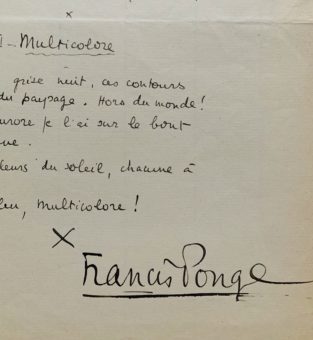 x
I - Multicolore
grise nuit, ces contours
du paysage. Hors du monde!
aurore je l'ai sur le bout
ue.
leurs du soleil, chacune à
leu, multicolore!
x
Francis Ponge